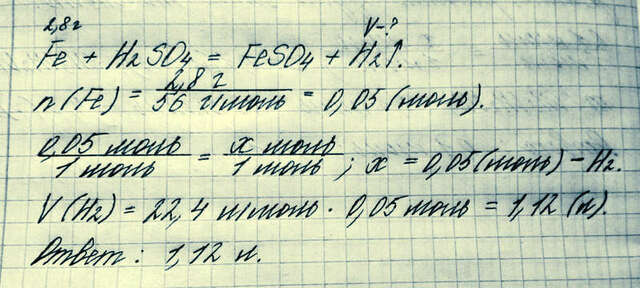 2,8 г V-?
Fe + H2SO4 = FeSO4 + H2↑.
n(Fe) = 2,8 г / 56 г/моль = 0,05 (моль).
0,05 моль / 1 моль = x моль / 1 моль ; x = 0,05 (моль) - H2.
V(H2) = 22,4 л/моль · 0,05 моль = 1,12 (л).
Ответ: 1,12 л.